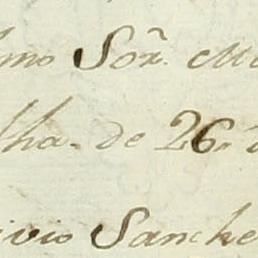 mo Sõr. M
lha. de 26.
ivio Sanche